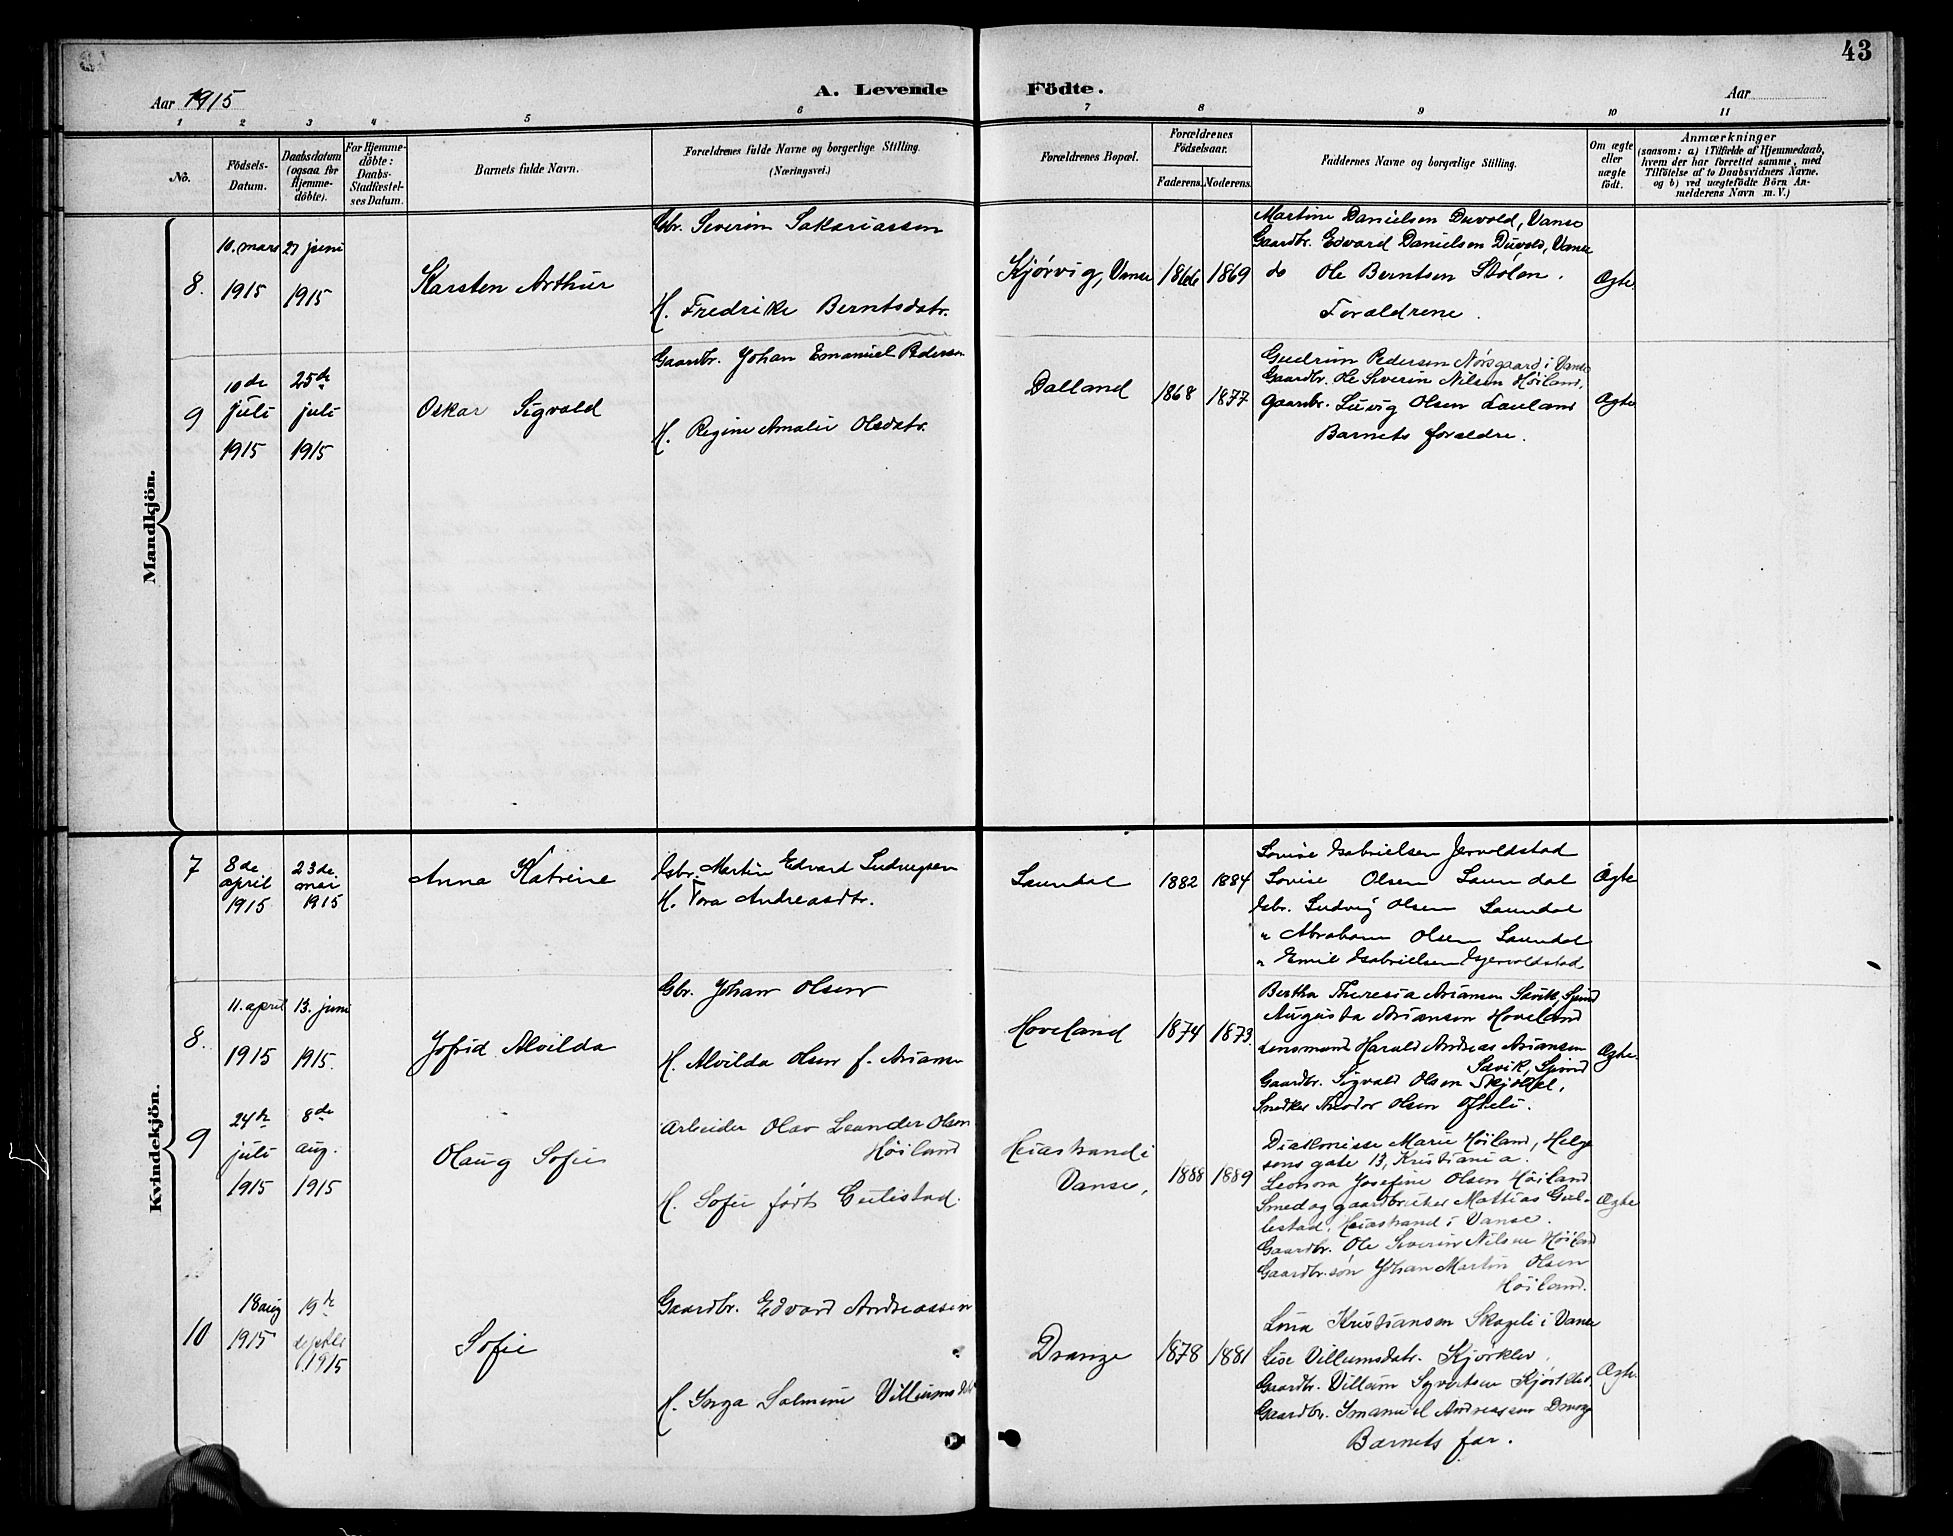 43
Aar 1915
A. Levende Födte.
Aar
1 2 3 4 5 6 7 8 9 10 11
No.
Födsels-Datum.
Daabsdatum (ogsaa for Hjemme-döbte).
For Hjemme-döbte: Daabs-Stadfæstel-ses Datum.
Barnets fulde Navn.
Forældrenes fulde Navne og borgerlige Stilling.
(Næringsvei.)
Forældrenes Bopæl.
Forældrenes Födselsaar.
Faderens. Moderens.
Faddernes Navne og borgerlige Stilling.
Om ægte eller uægte födt.
Anmærkninger
(saasom: a) i Tilfælde af Hjemmedaab, hvem der har forrettet samme, med Tilföielse af to Daabsvidners Navne. og b) ved uægtefödte Börn An-melderens Navn m. V.)
Mandkjön.
8.
10. mars 1915
27 juni 1915
Karsten Arthur
Gbr. Severin Sakariassen
H. Fredrike Berntsdatr.
Kjørvig, Vanse
1866 1869
Martine Danielsen Duvold, Vanse
Gaardbr. Edvard Danielsen Duvold, Vanse
do Ole Berntsen Stølen.
Forældrene.
Ægte.
9
10de juli 1915
25de juli 1915
Oskar Sigvald
Gaardbr. Johan Emanuel Pedersen
H. Regine Amalie Olsdatr.
Dalland
1868 1877
Gudrun Pedersen Norsgaard i Vanse
Gaardbr. Ole Severin Nilsen Høiland,
Gaardbr. Luvig Olsen Lauland
Barnets forældre.
Ægte
Kvindekjön.
7
8de april 1915
23de mai 1915
Anna Katrine
Gbr. Martin Edvard Ludvigsen
H. Tora Andreasdtr.
Laundal
1882 1884
Lovise Gabrielsen Jervoldstad
Lovise Olsen Laundal
Gbr. Ludvig Olsen Laundal
" Abraham Olsen Laundal
" Emil Gabrielsen Gjervoldstad
Ægte
8.
11. april 1915
13. juni 1915.
Jofrid Alvilda
Gbr. Johan Olsen
H. Alvilda Olsen f. Ariansen
Hoveland
1874 1873.
Bertha Theresia Ariansen Savik, Spind
Augusta Ariansen Hoveland
Lensmand Harald Andreas Ariansen
Savik, Spind
Gaardbr. Sigvald Olsen Skjoldal,
Snedker Theodor Olsen Ofteli.
Ægte.
9
24de juli 1915
8de aug. 1915
Olaug Sofie
Arbeider Olav Leander Olsen
Høiland
H. Sofie født Gullestad.
Huiastrand i
Vanse,
1888 1889
Diakonisse Marie Høiland, Helge
sens gate 13, Kristiania.
Leonora Josefine Olsen Høiland
Smed og gaardbruker Mattias Gul-
lestad, Huiastrand i Vanse.
Gaardbr. Ole Severin Nilsen Høiland
Gaardbr.søn Johan Martin Olsen
Høiland.
Ægte
10
18 aug 1915
19de septbr 1915
Sofie
Gaardbr. Edvard Andreassen
H. Inga Salmine Villiumsdatr
Drange
1878 1881
Lina Kristiansen Skageli i Vanse
Lise Villumsdatr. Kjørklev
Gaardbr. Villum Syvertsen Kjørklev.
Gaardbr. Imanuel Andreassen Drange
Barnets far.
Ægte.